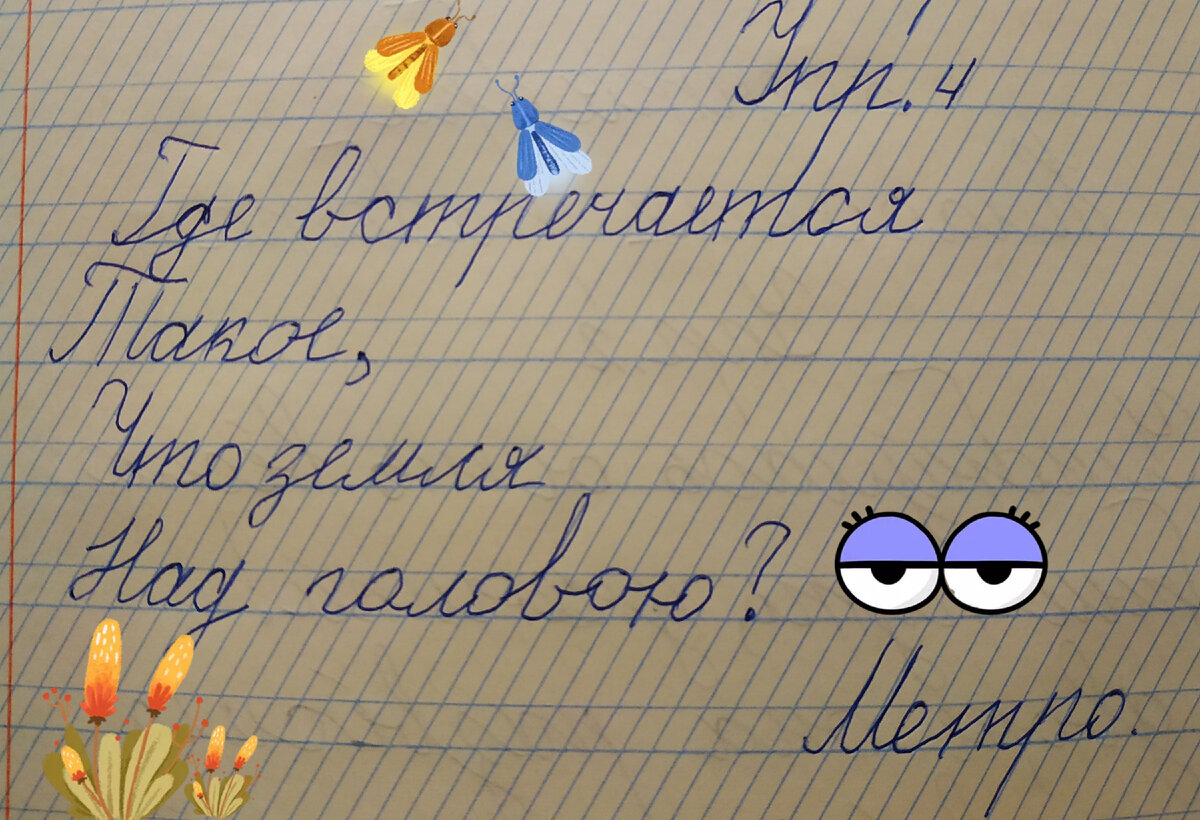 Упр. 4
Где встречается
Такое,
Что земля
Над головою?
Метро.